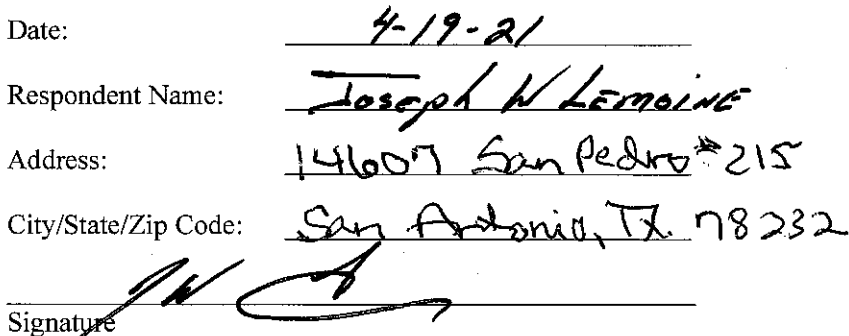 Date: 4-19-21
Respondent Name: Joseph W Lemoine
Address: 14607 San Pedro #215
City/State/Zip Code: San Antonio, TX. 78232
Signature